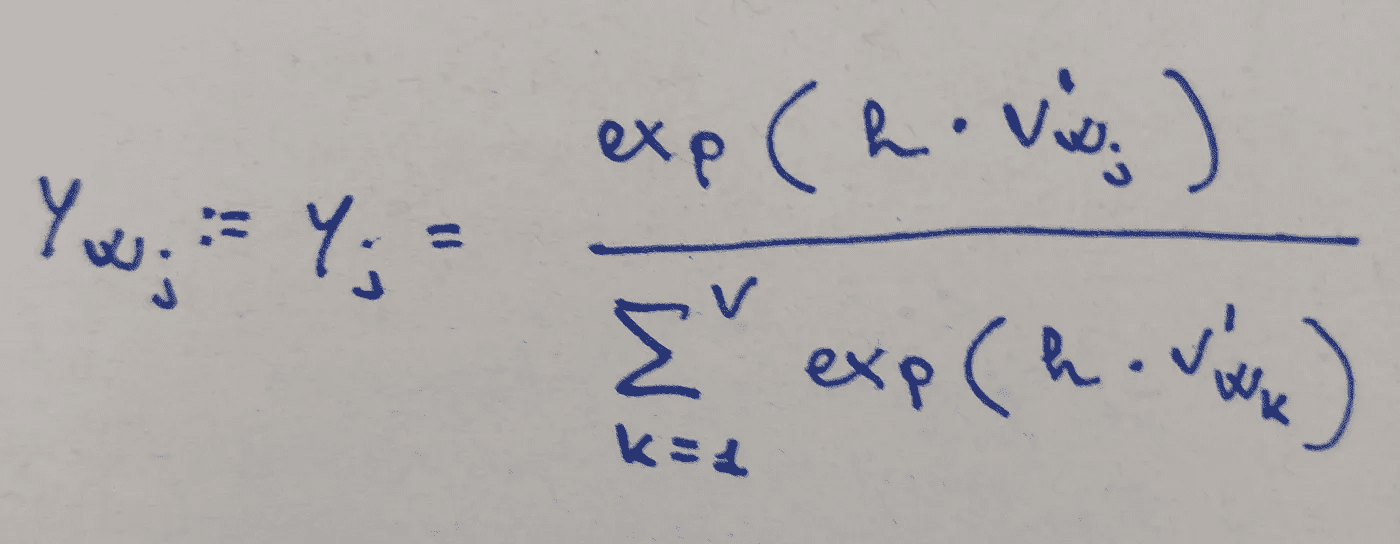 y_{w_j} := y_j = \frac{exp(h · v'_{w_j})}{\sum_{k=1}^{V} exp(h · v'_{w_k})}